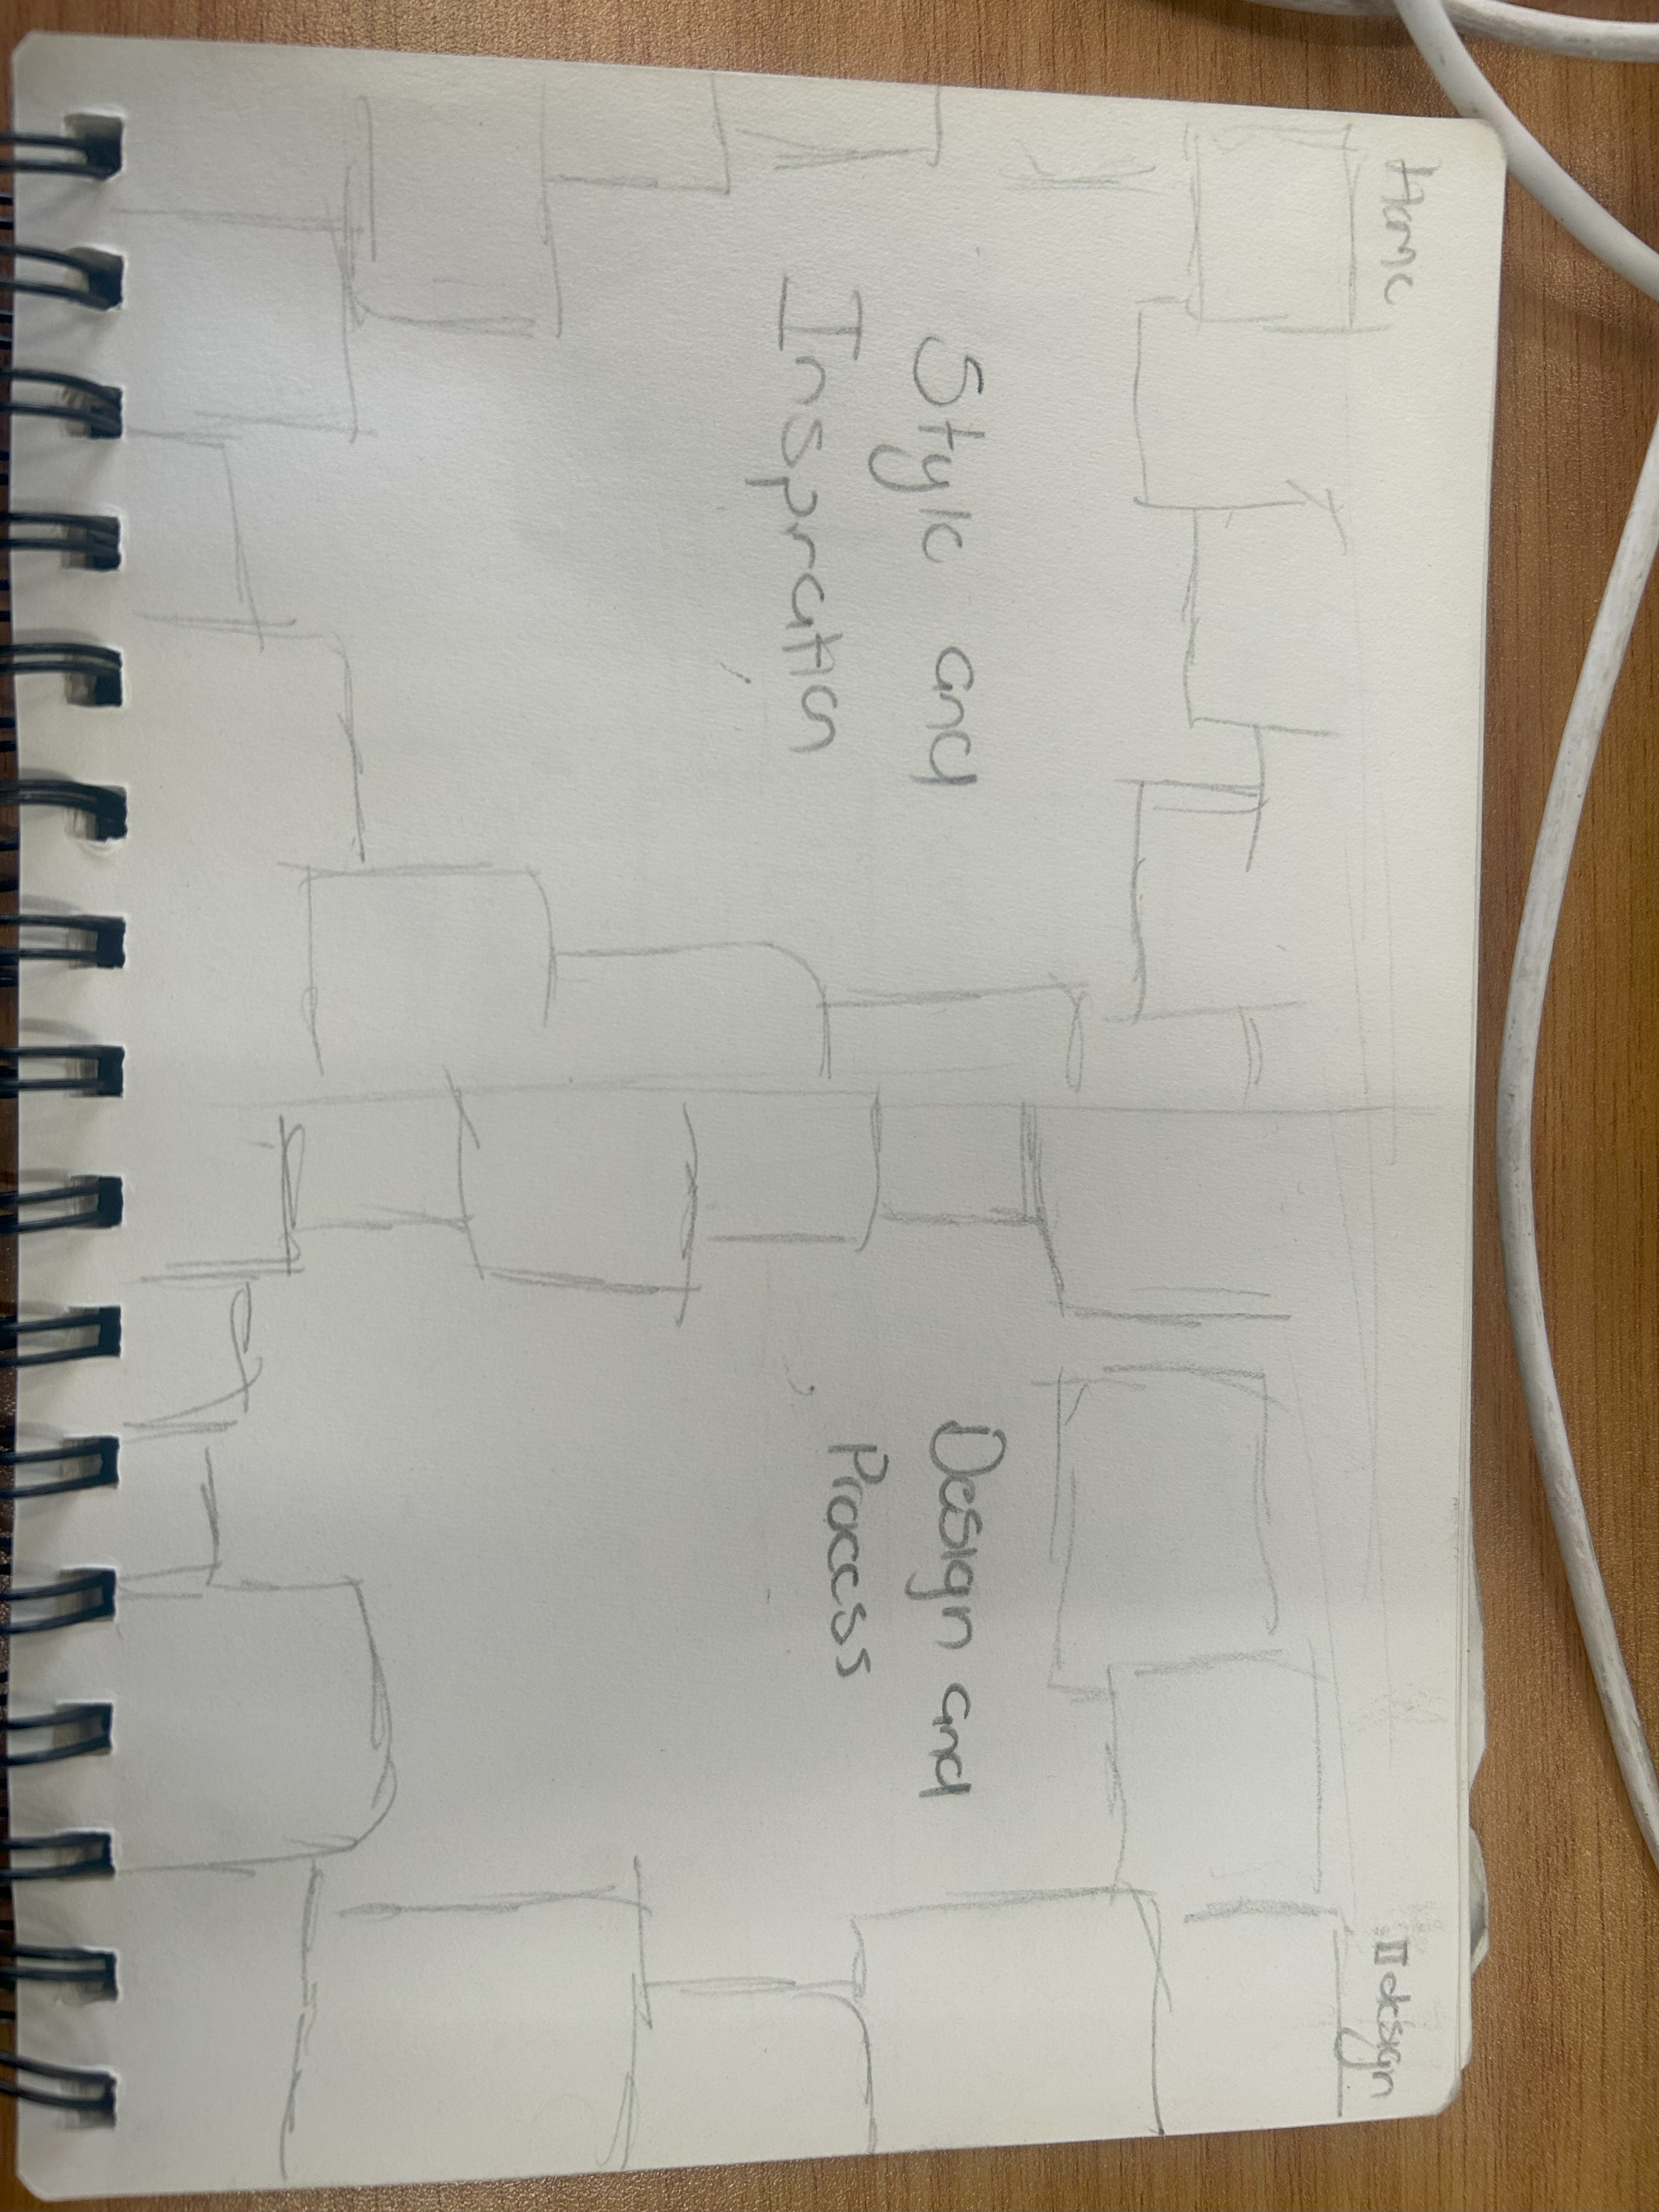 Home
II design
Style and
Inspiration
Design and
Process